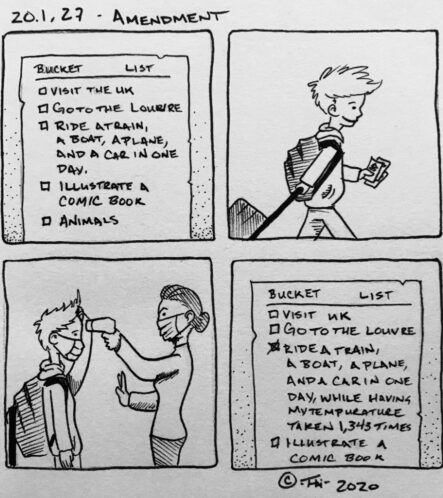 20.1, 27 - AMENDMENT
BUCKET LIST
VISIT THE UK
GO TO THE LOUVRE
RIDE A TRAIN,
A BOAT, A PLANE,
AND A CAR IN ONE
DAY.
ILLUSTRATE A
COMIC BOOK
ANIMALS
BUCKET LIST
VISIT UK
GO TO THE LOUVRE
RIDE A TRAIN,
A BOAT, A PLANE,
AND A CAR IN ONE
DAY, WHILE HAVING
MY TEMPURATURE
TAKEN 1,343 TIMES
ILLUSTRATE A
COMIC BOOK
© 2020